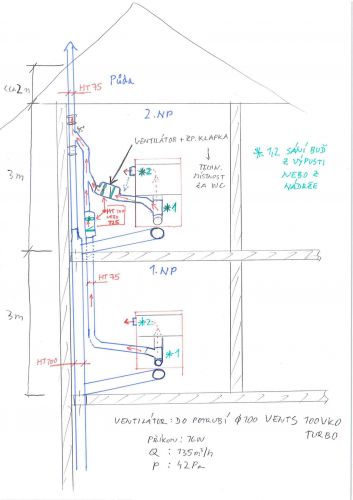 cca 2m
HT 75
Půda
2.NP
VENTILÁTOR + ZP. KLAPKA
*2
TECHN.
MÍSTNOST
ZA WC
* 1,2 SANÍ BUĎ
Z VÝPUSTI
NEBO Z
NÁDRŽE
3m
HT 100
NEBO
125
*1
1.NP
HT75
*2
3m
HT100
*1
VENTILÁTOR: DO POTRUBÍ Φ100 VENTS 100VKO
TURBO
PŘÍKON: 16W
Q : 135m³/h
P : 42Pa